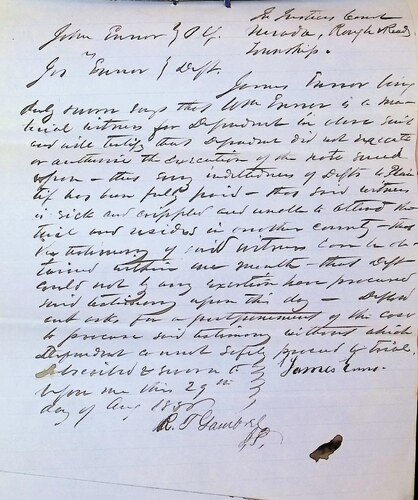 In Justices Court
John Ennor } Plf.
Nevada, Rough & Ready
vs
Township.
Jas Ennor } Deft.
James Ennor being
duly sworn says that Wm Ennor is a mat
erial witness for Defendant in above suit
and will testify that Defendant did not execute
or authorize the execution of the note sued
upon - that any indebtedness of Defts to Plain
tif has been fully paid - that said witness
is sick and crippled and unable to attend the
trial and resides in another county - that
the testimony of said witness can be ob
tained within one month - that Deft
could not by any exertion have procured
said testimony upon this day - Defend
ant asks for a postponement of the case
to procure said testimony without which
Defendant cannot safely proceed to trial.
Subscribed & sworn to }
James Ennor.
before me this 29th }
day of Aug }
R. T. Gambrel
J.P.